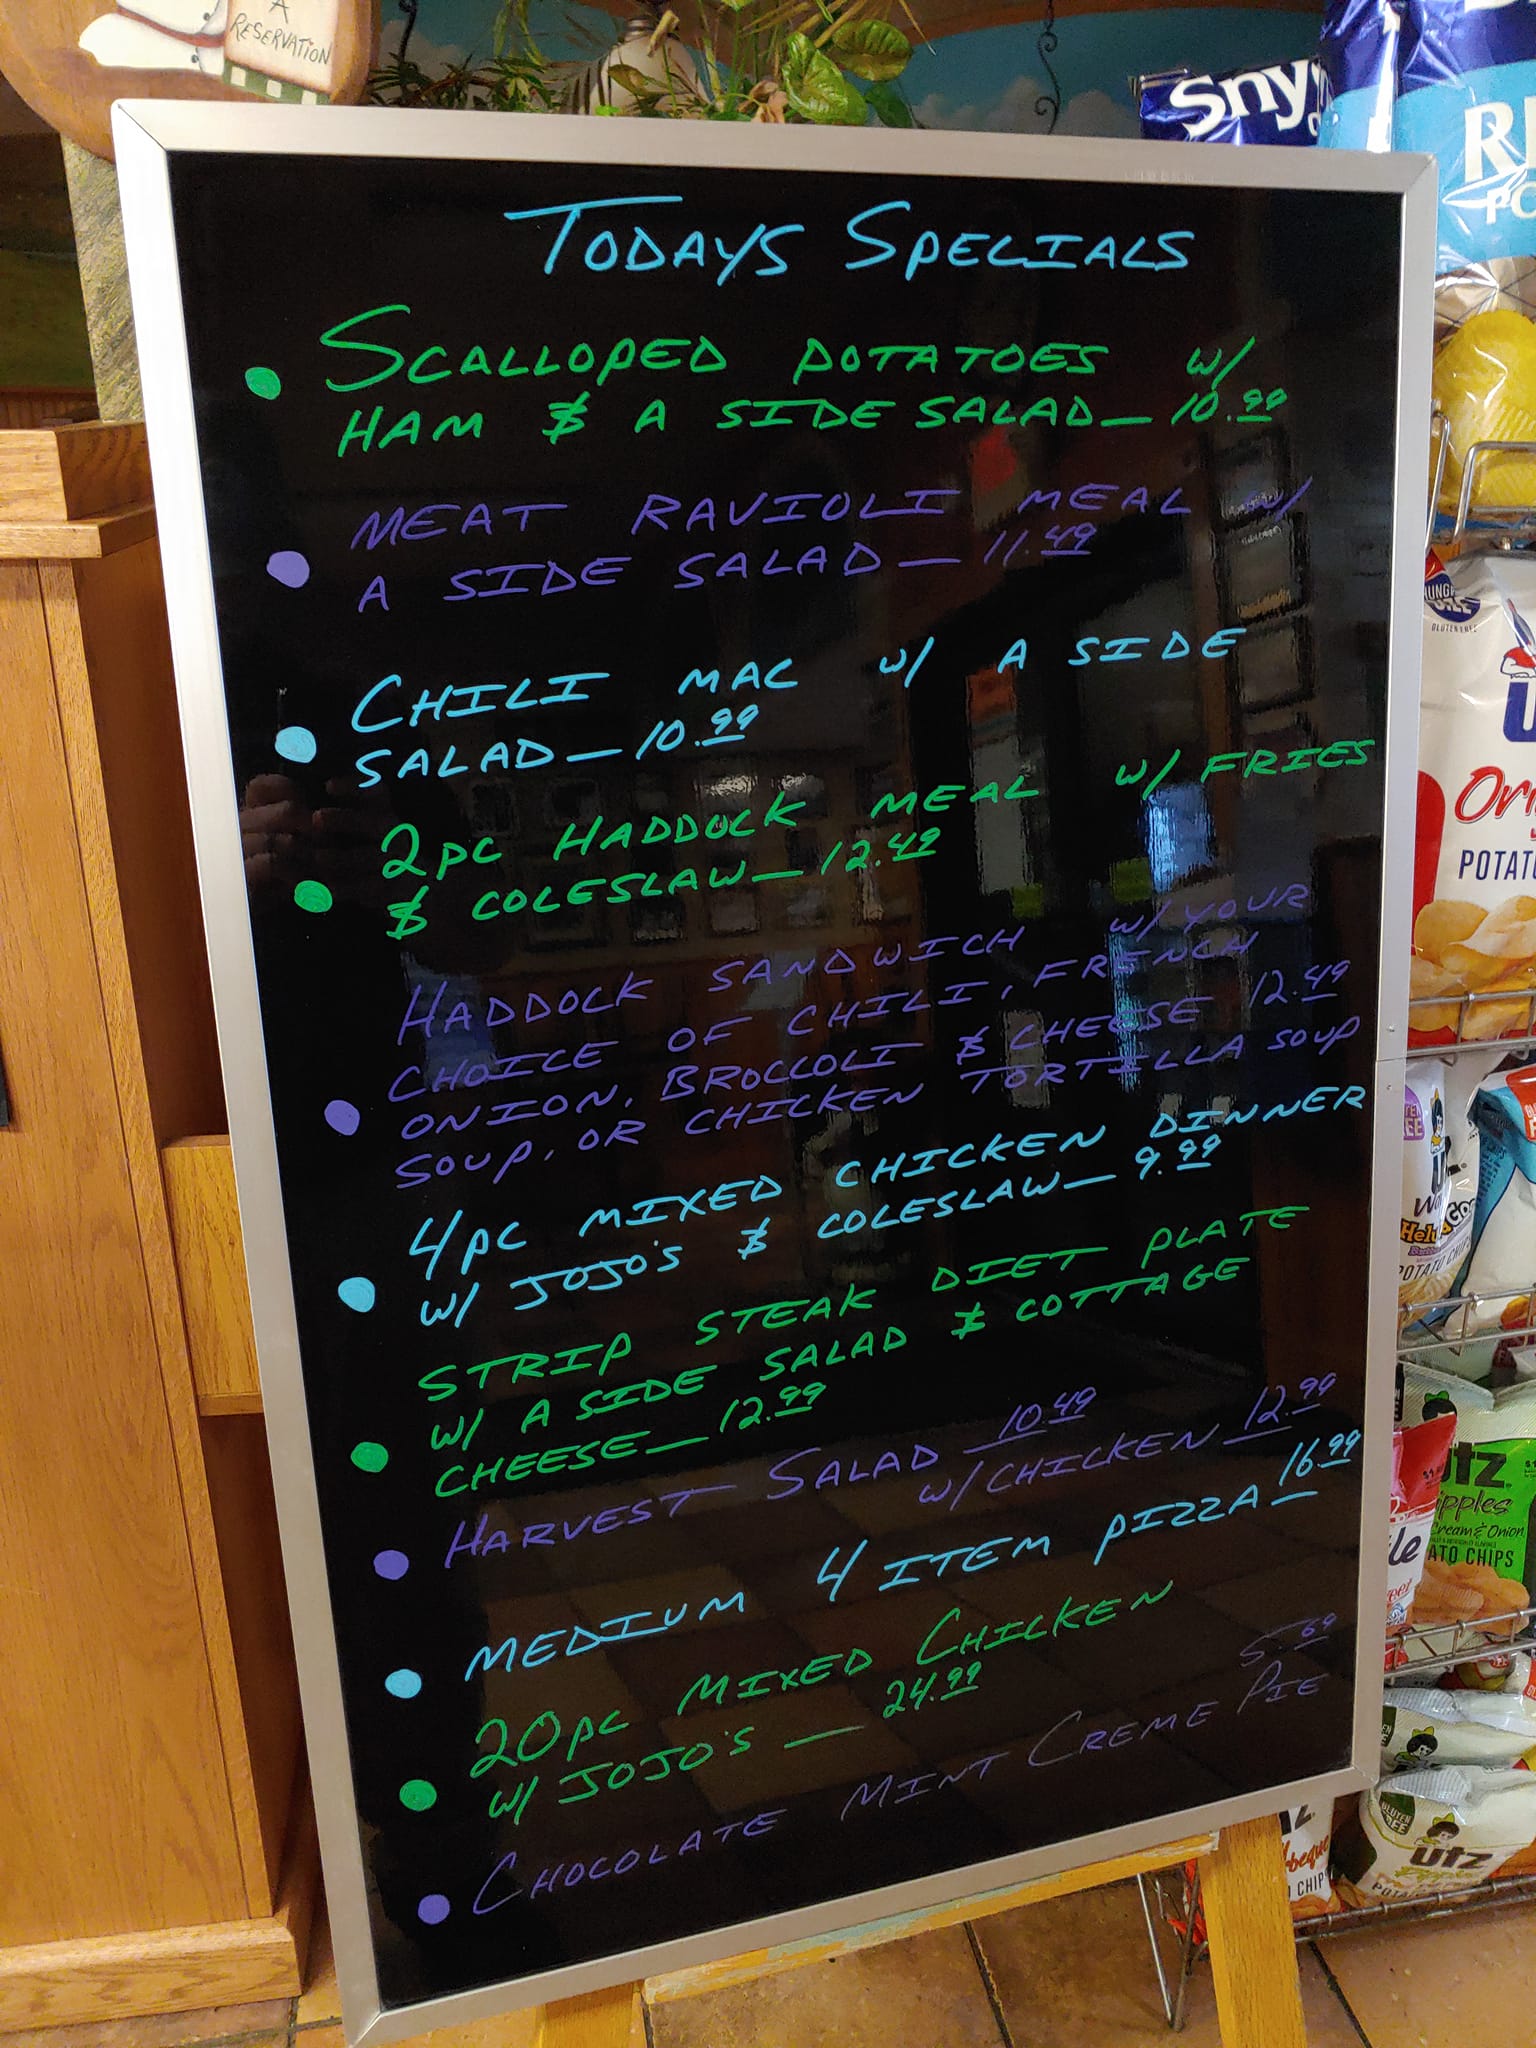 A
RESERVATION
TODAYS SPECIALS
SCALLOPED POTATOES w/
HAM & A SIDE SALAD - 10.99
MEAT RAVIOLI MEAL w/
A SIDE SALAD - 11.49
CHILI MAC w/ A SIDE
SALAD - 10.99
2PC HADDOCK MEAL w/ FRIES
& COLESLAW - 12.49
HADDOCK SANDWICH w/ YOUR
CHOICE OF CHILI, FRENCH
ONION, BROCCOLI & CHEESE 12.49
SOUP, OR CHICKEN TORTILLA SOUP
4PC MIXED CHICKEN DINNER
w/ JOJO'S & COLESLAW - 9.99
STRIP STEAK DIET PLATE
w/ A SIDE SALAD & COTTAGE
CHEESE - 12.99
HARVEST SALAD 10.49
w/ CHICKEN 12.99
MEDIUM 4 ITEM PIZZA - 16.99
20PC MIXED CHICKEN
w/ JOJO'S - 24.99
5.69
CHOCOLATE MINT CREME PIE
Sny
GLUTEN FREE
Ori
POTAT
POTATO CHIPS
utz
ipples
Cream & Onion
ATO CHIPS
le
GLUTEN FREE
utz
CHIP